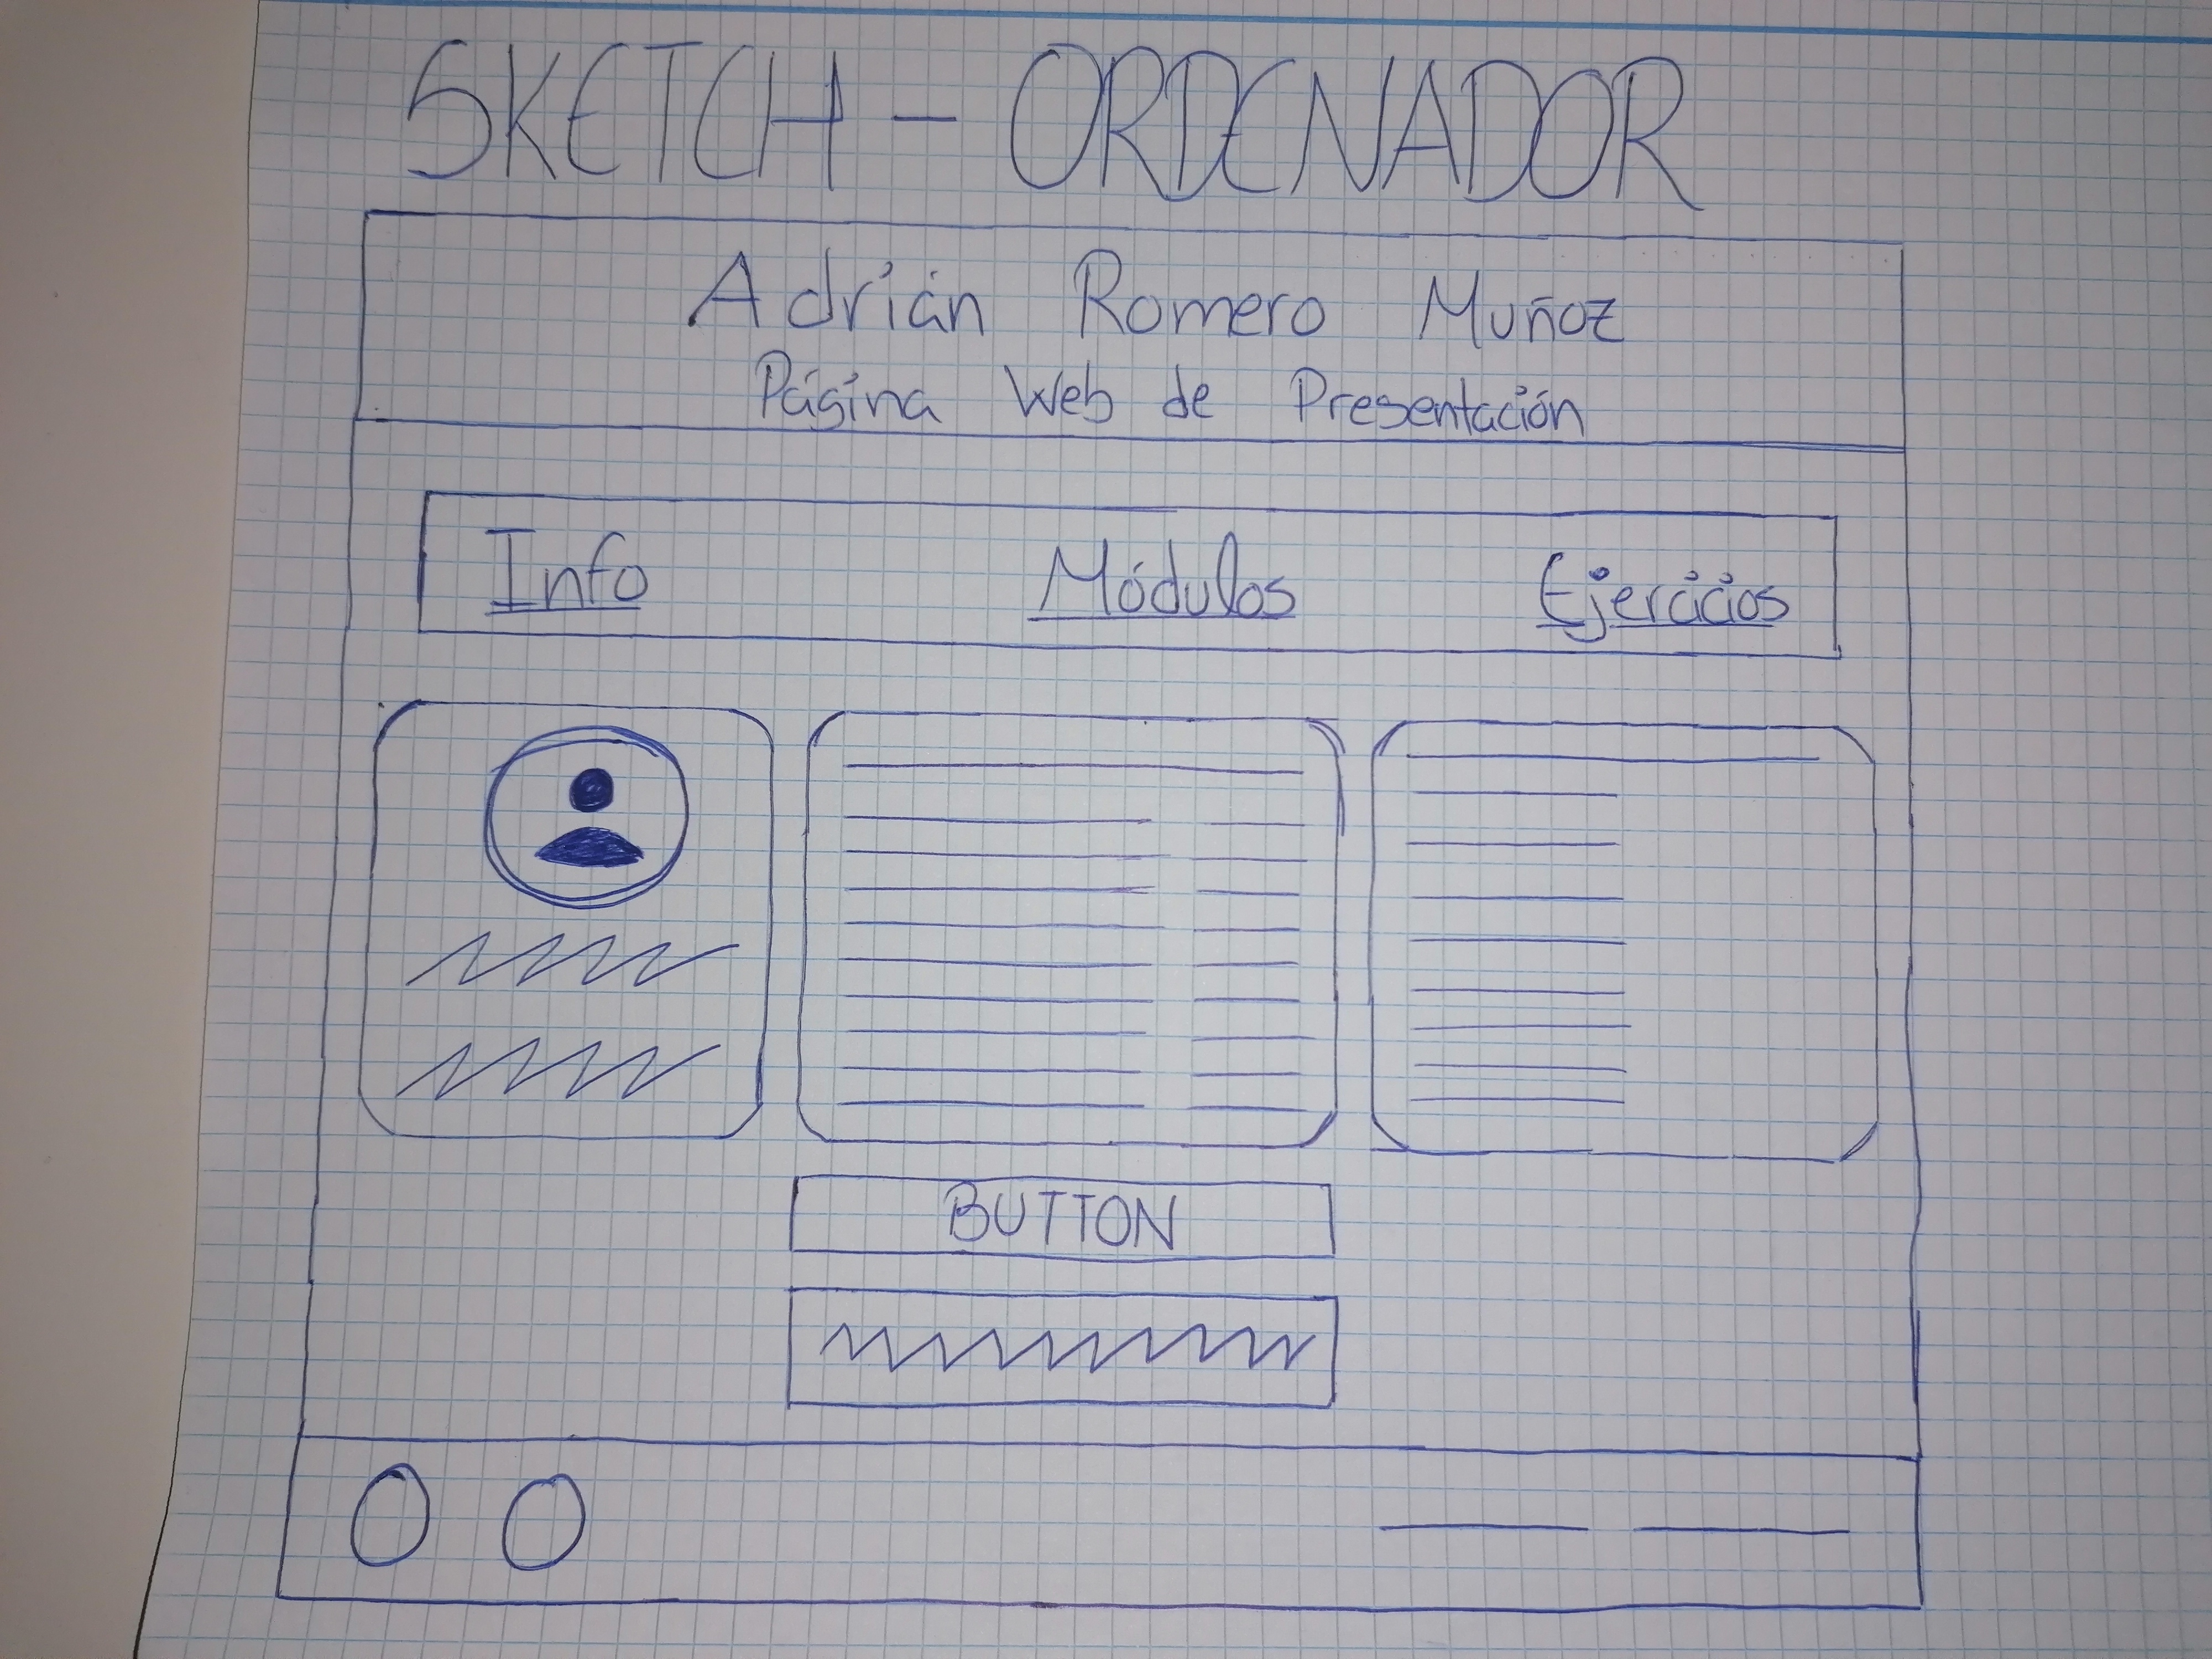 SKETCH - ORDENADOR
Adrián Romero Muñoz
Página Web de Presentación
Info Módulos Ejercicios
BUTTON